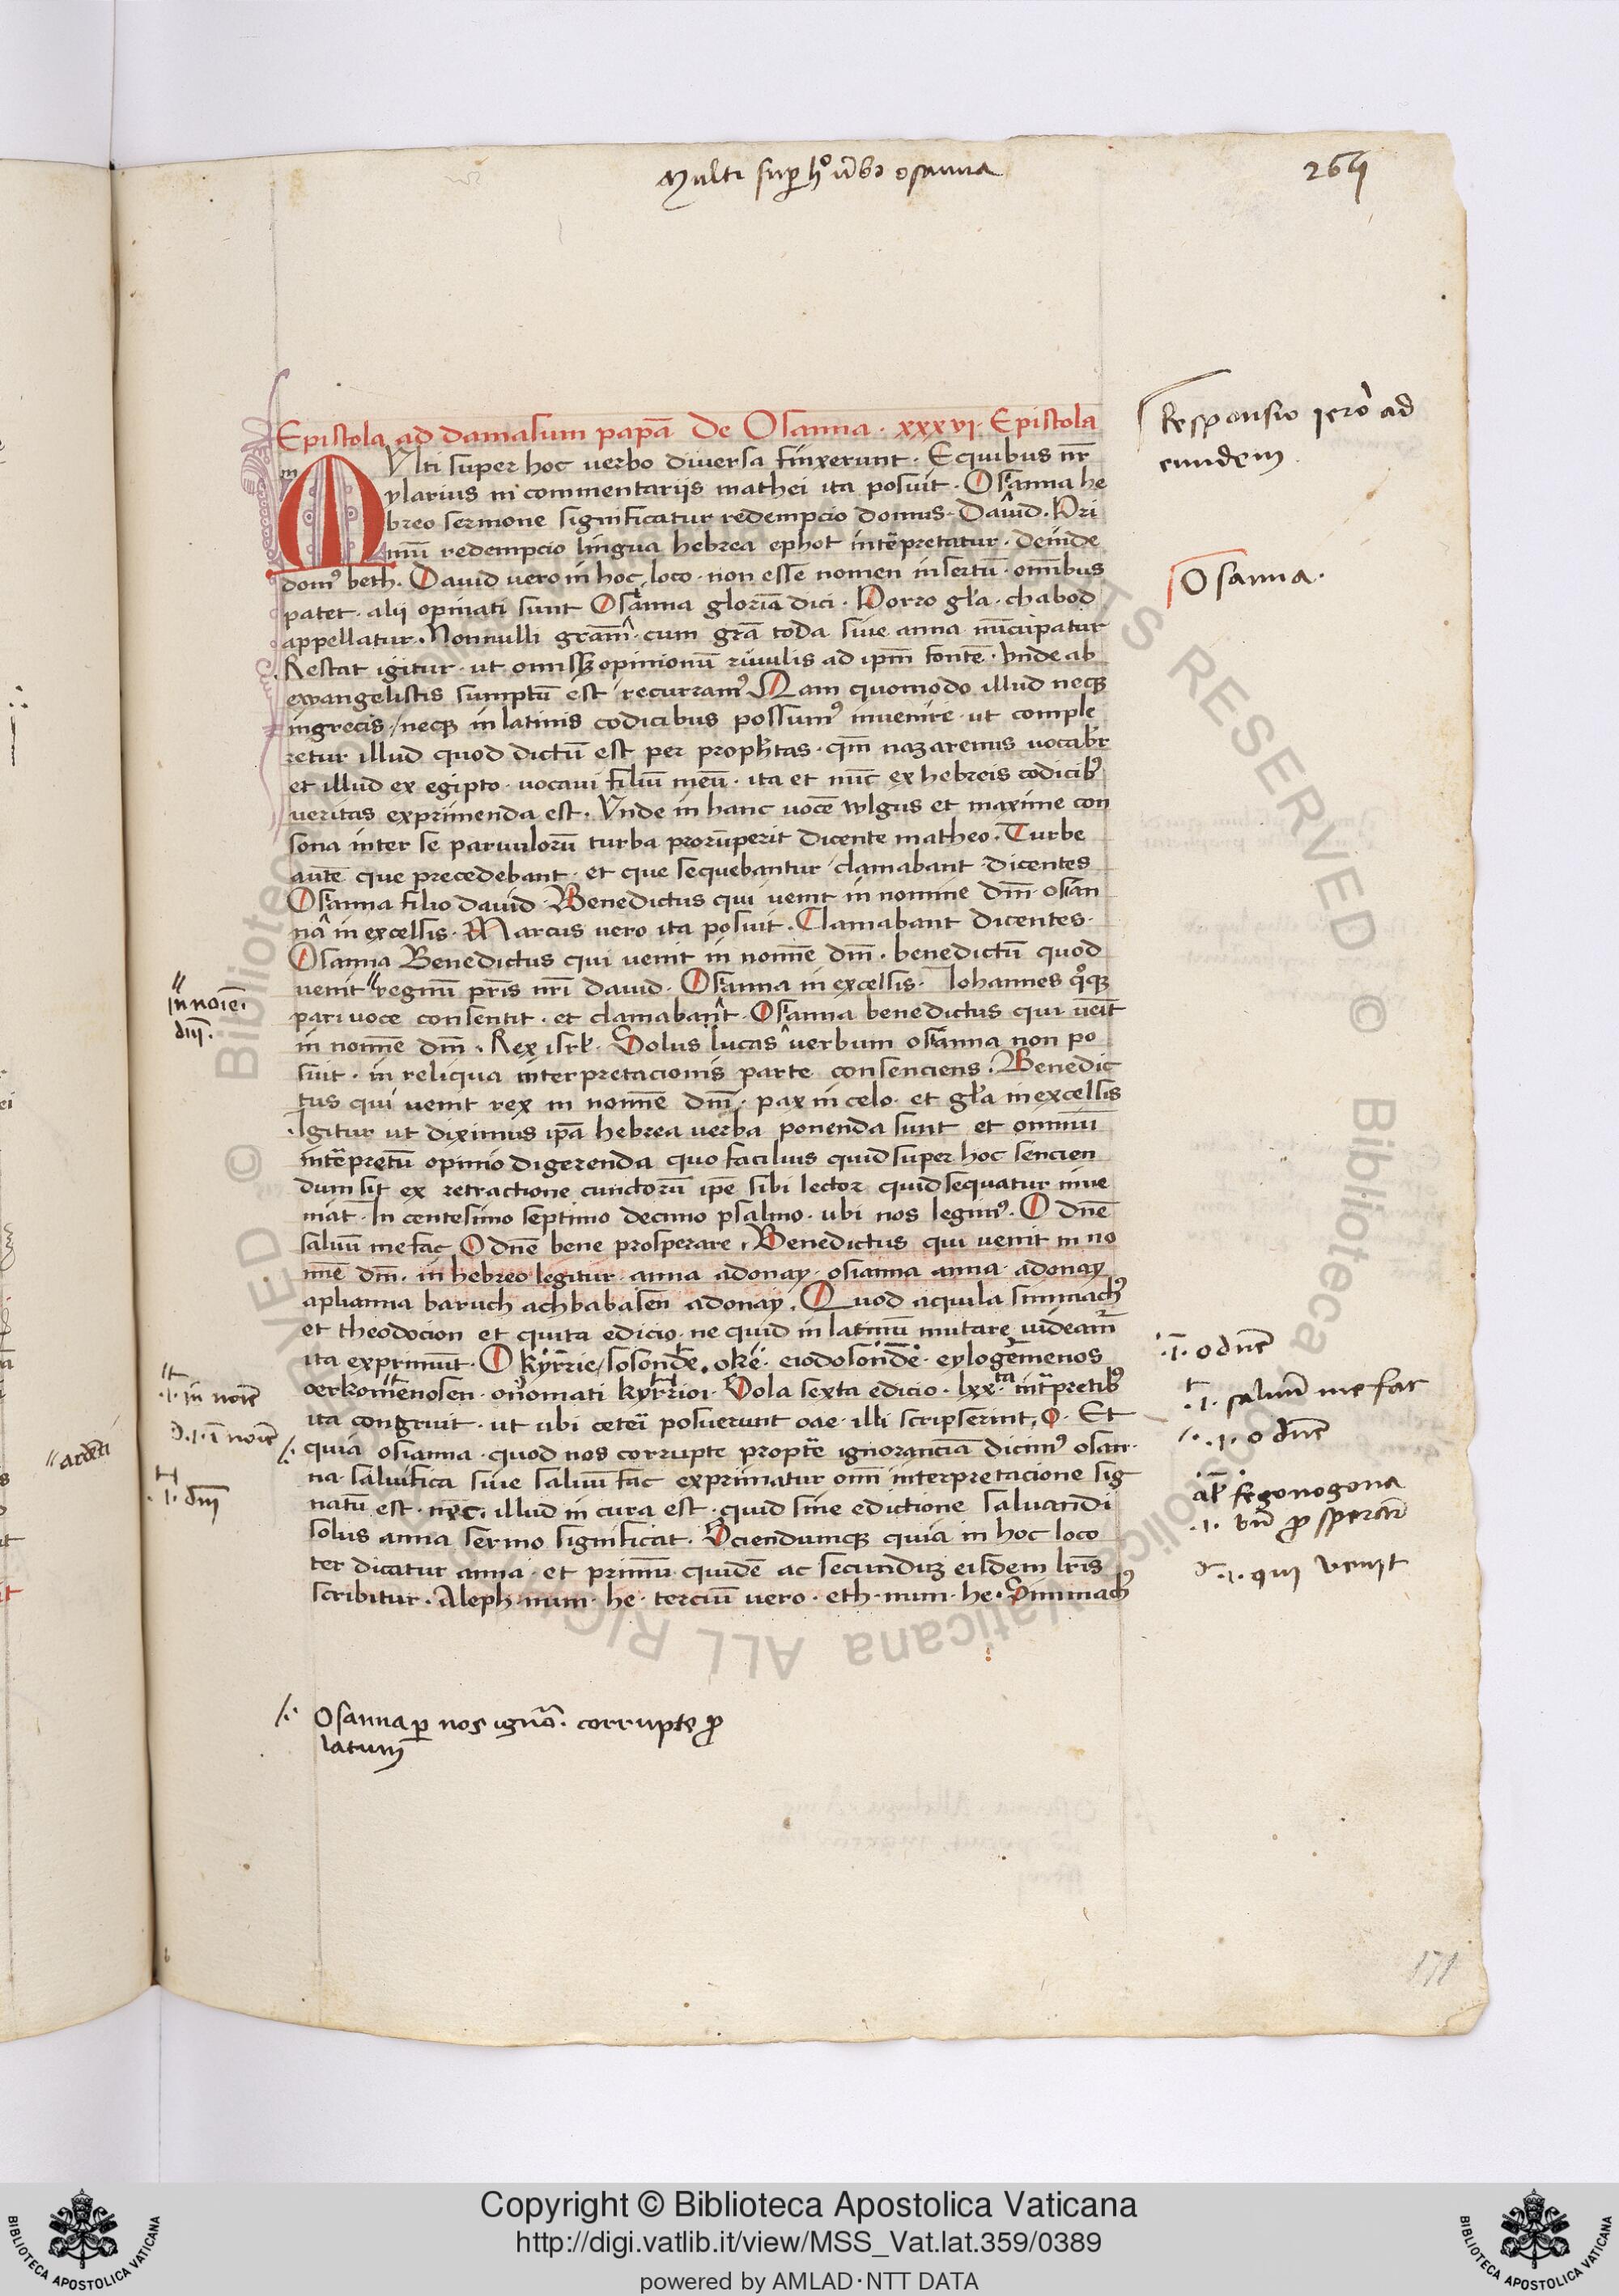 Multi sup hͦ ūbo osanna
264
Epistola ad damasum papā De Osanna · xxxvi · Epistola
Responsio iero ad
eundem
m
MVlti super hoc uerbo diuersa finxerunt · E quibus nr̄
ylarius in commentarijs mathei ita posuit · Osanna he
breo sermone significatur redempcio domus · Dauid · Pri
mū redempcio lingua hebrea ephot int̄pretatur · deinde
domꝰ beth · Dauid uero in hoc loco · non esse nomen insertū · omībus
Osanna ·
patet · alij opinati sunt Osanna gloriā dici · Porro gl̄a · chabod
appellatur · Nonnulli grām̄ · cum grā toda siue anna nūcupatur
Restat igitur · ut omissꝫ opinionū riuulis ad ip̄m fontē · Vnde ab
ewangelistis sumptū est recurramꝰ Nam quomodo illud necꝫ
in grecis / necꝫ in latinis codicibus possumꝰ inuenire · ut comple
retur illud quod dictū est per proph̄tas · qm̄ nazarenus uocabr̄
et illud ex egipto · uocaui filiū meū · ita et nūc ex hebreis codicibꝰ
ueritas exprimenda est · Vnde in hanc uocē wlgus et maxime con
sona inter se paruulorū turba prorūperit dicente matheo · Turbe
autē que precedebant · et que sequebantur clamabant dicentes
Osanna filio dauid · Benedictus qui uenit in nomine dm̄ · osian
na in excelsis · Marcus uero ita posuit · Clamabant dicentes ·
Osanna Benedictus qui uenit in nomīe dm̄ · benedictū quod
uenit // regnū pr̄is nr̄i dauid · Osanna in excelsis · Iohannes qͦqꝫ
// in noīe
dn̄i ·
pari uoce consentit · et clamabant · Osanna benedictus qui ueīt
in nomīe dm̄ · Rex isrl̄ · Solus lucas uerbum osanna non po
suit · in reliqua interpretacionis parte consenciens · Benedic
tus qui uenit rex in nomīe dm̄ · pax in celo · et gl̄a in excelsis
· Igitur ut diximus ip̄a hebrea uerba ponenda sunt et omniū
int̄pretū opinio digerenda quo facilius quid super hoc sencien
dum sit ex retractione cunctorū ip̄e sibi lector quid sequatur inue
niat · In centesimo septimo decimo psalmo · ubi nos legimꝰ · O dn̄e
saluū me fac O dn̄e bene prosperare · Benedictus qui uenit in no
mīe dm̄ · in hebreo legitur · anna adonay · osianna anna · adonay
aplianna baruch achbabasen adonay · Quod aquila simmachꝰ
et theodocion et quita edicio · ne quid in latinū mutare uideam̄
ita exprimūt · O kyrrie / sosonde · oke · eiodosonde · eylogemenos
· i · o dn̄e
oerkomenosen · onomati kyrrioi · Sola sexta edicio · lxx · ta int̄pretibꝰ
· i · in noīe
· i · saluū me fac
ita congruit · ut ubi ceteri posuerunt oae · illi scripserint · o · Et
· i · ī noīe
· i · o dn̄e
quia osianna · quod nos corrupte propt̄e ignoranciā dicimꝰ osan ·
na · saluifica siue saluū fac exprimatur omī interpretacione sig
· i · dm̄
natū est · nec · illud in cura est · quid sine edictione saluandi
solus anna sermo significat · Sciendumqꝫ quia in hoc loco
ter dicatur anna · et primū quidē ac secunduꝫ eisdem lr̄is
· i · qui uenit
scribitur · Aleph · num · he · terciū uero · eth · num · he · Simmachꝰ
Osanna p nos ignā · corrupte p
latum
171
Copyright © Biblioteca Apostolica Vaticana
http://digi.vatlib.it/view/MSS_Vat.lat.359/0389
powered by AMLAD·NTT DATA
BIBLIOTECA APOSTOLICA VATICANA
BIBLIOTECA APOSTOLICA VATICANA